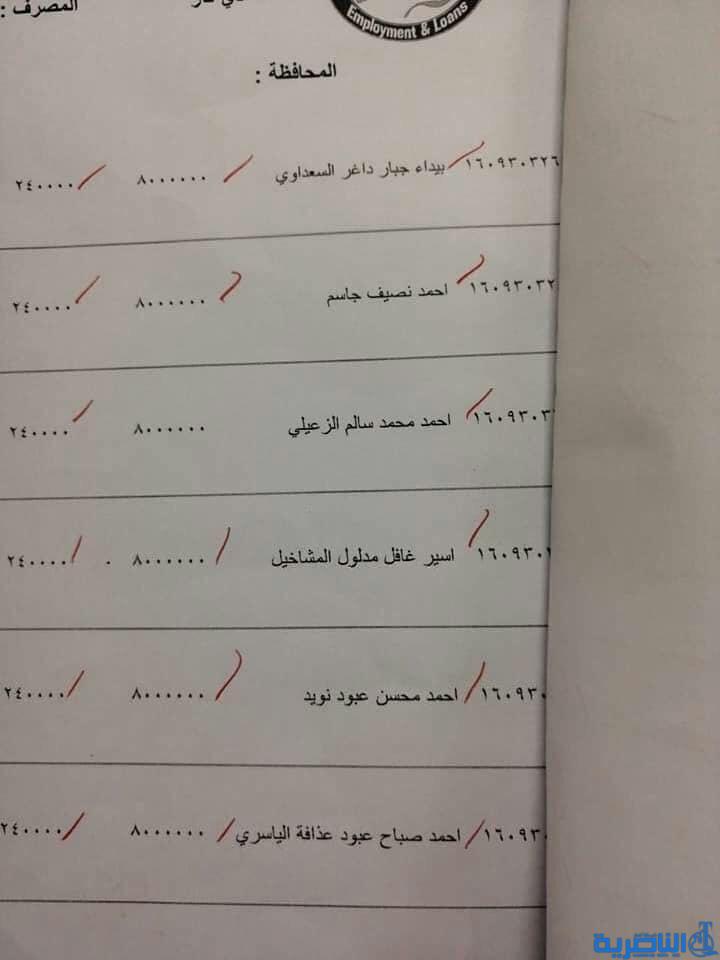 المصرف :
Employment & Loans
المحافظة :
١٦٠٩٣٠٣٢٦ بيداء جبار داغر السعداوي ٨٠٠٠٠٠٠ ٢٤٠٠٠٠
١٦٠٩٣٠٣٢ احمد نصيف جاسم ٨٠٠٠٠٠٠ ٢٤٠٠٠٠
١٦٠٩٣٠٣ احمد محمد سالم الزعيلي ٨٠٠٠٠٠٠ ٢٤٠٠٠٠
١٦٠٩٣٠ اسير غافل مدلول المشاخيل ٨٠٠٠٠٠٠ ٢٤٠٠٠٠
١٦٠٩٣٠ احمد محسن عبود نويد ٨٠٠٠٠٠٠ ٢٤٠٠٠٠
١٦٠٩٣٠ احمد صباح عبود عذافة الياسري ٨٠٠٠٠٠٠ ٢٤٠٠٠٠
الناصرية